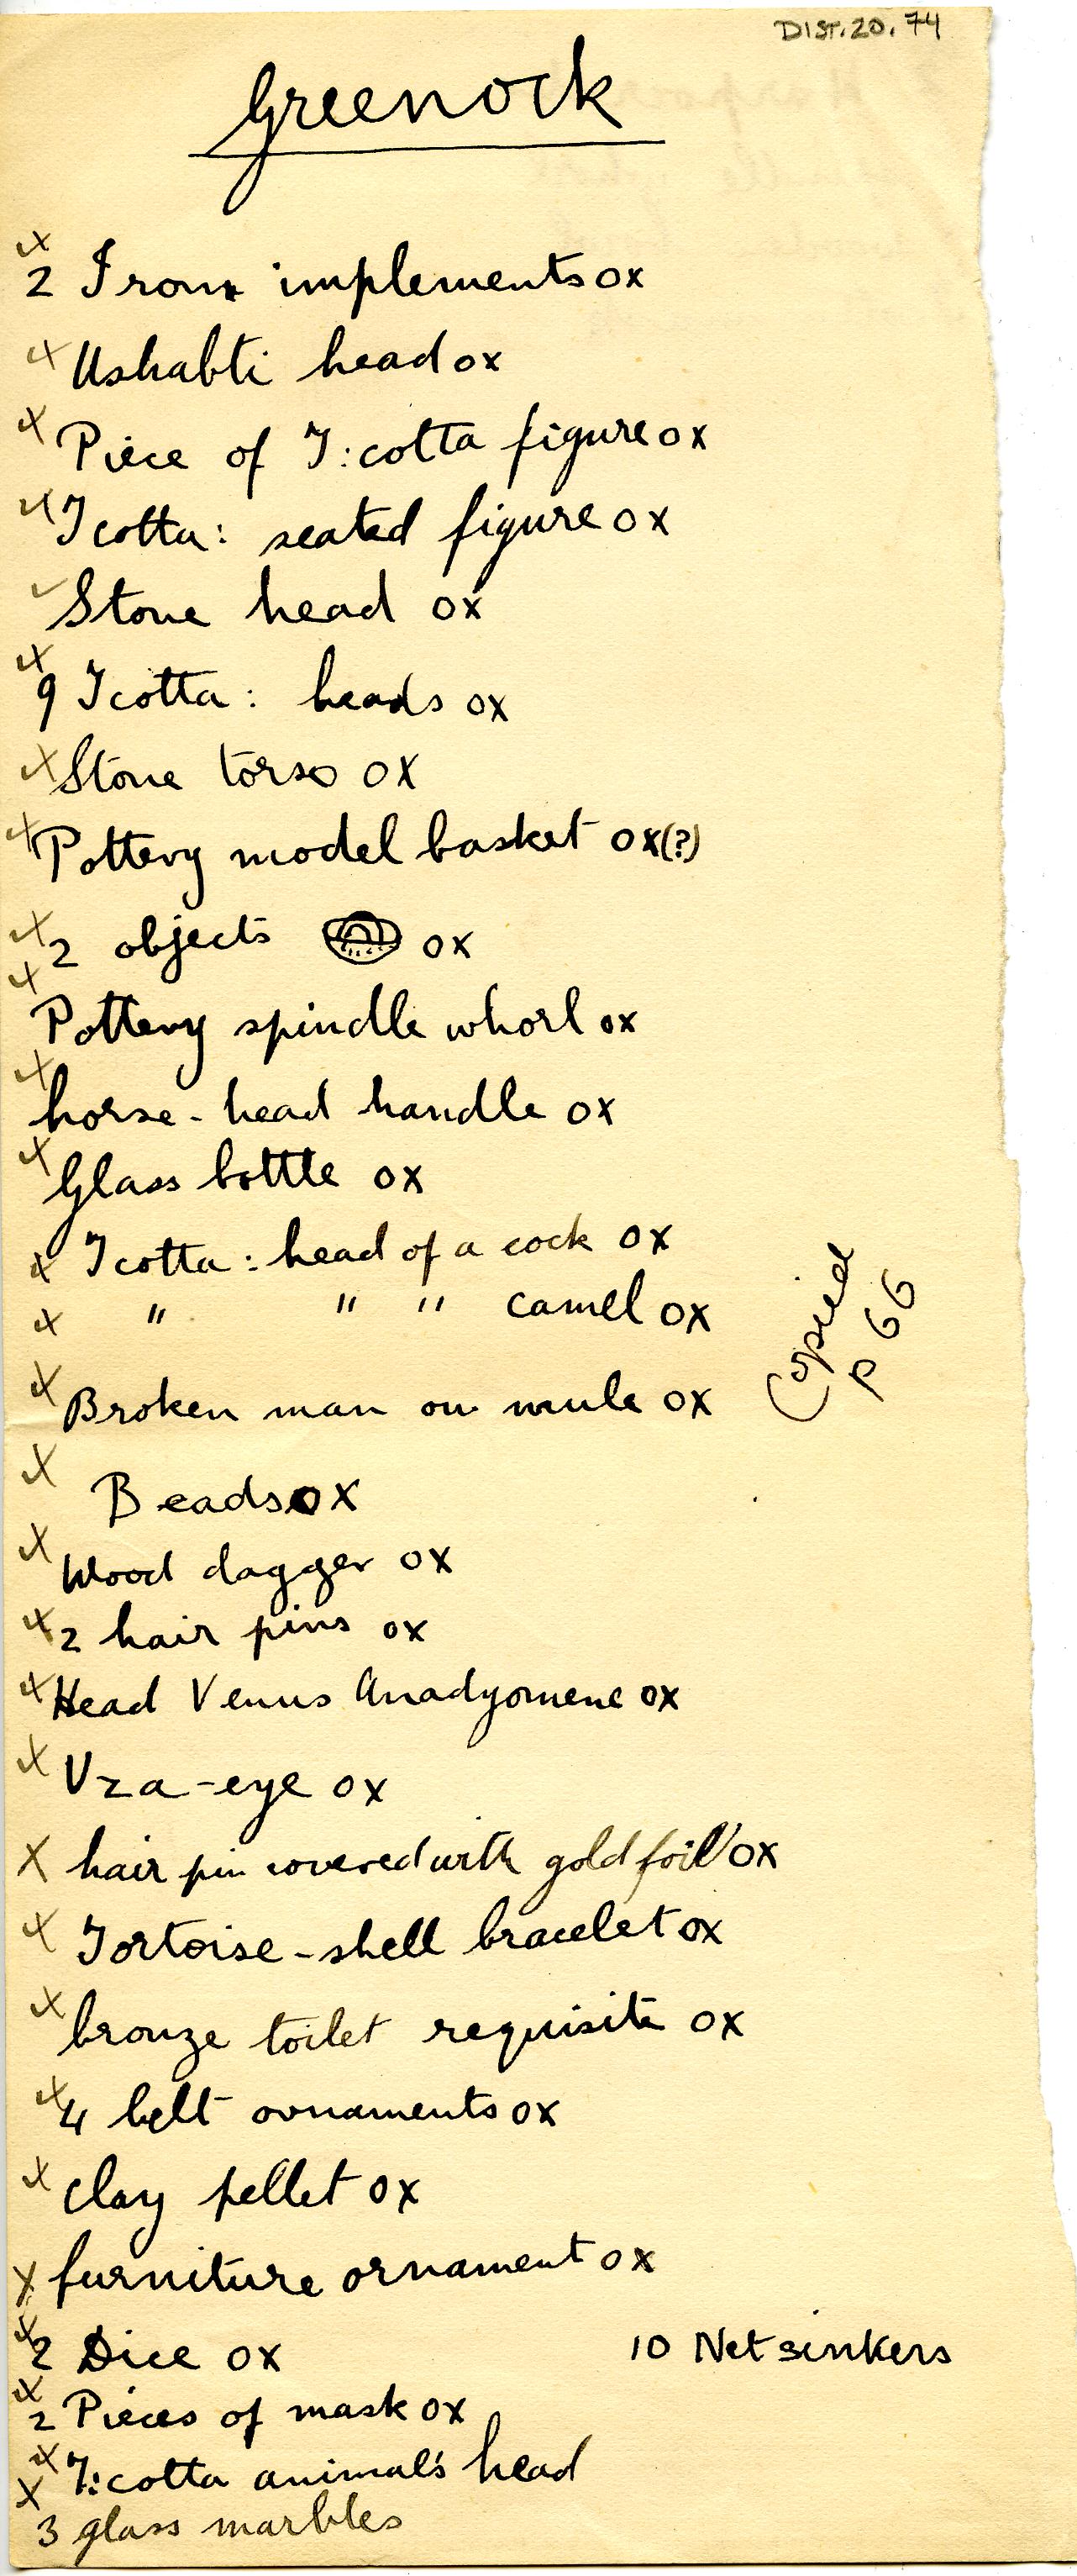 DIST.20.74
Greenock
2 Iron implements OX
Ushabti head OX
Piece of T:cotta figure OX
Tcotta: seated figure OX
Stone head OX
9 Tcotta: heads OX
Stone torso OX
Pottery model basket OX(?)
2 objects OX
Pottery spindle whorl OX
horse-head handle OX
Glass bottle OX
Tcotta: head of a cock OX
" " " camel OX
Copied
p 66
Broken man on mule OX
Beads OX
Wood dagger OX
2 hair pins OX
Head Venus Anadyomene OX
Uza-eye OX
hair pin covered with gold foil OX
Tortoise-shell bracelet OX
bronze toilet requisite OX
4 belt ornaments OX
Clay pellet OX
furniture ornament OX
2 Dice OX 10 Net sinkers
2 Pieces of mask OX
T:cotta animal's head
3 glass marbles